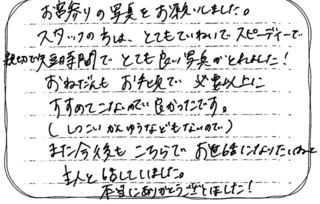 お宮参りの写真をお願いしました。
スタッフの方は、とてもていねいで スピーディーで
親切で短時間で とても良い写真がとれました!
おねだんも お手頃で 必要以上に
すすめてこないので 良かったです。
(しつこいかんゆうなどもないので)
また今後も こちらで お世話になりたいねと
主人と話していました。
本当にありがとうございました!